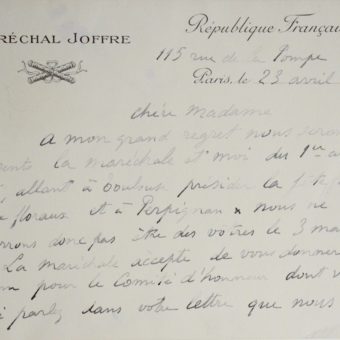 RÉCHAL JOFFRE
République Françai
115 rue de la Pompe
Paris, le 23 avril
chère Madame
A mon grand regret nous seron
sents la maréchale et moi du 1er a
, allant à Toulouse présider la fête
x floraux et à Perpignan x nous ne
rrons donc pas être des vôtres le 3 ma
La maréchale accepte de vous donner
m pour le Comité d'honneur dont v
i parlez dans votre lettre que nous